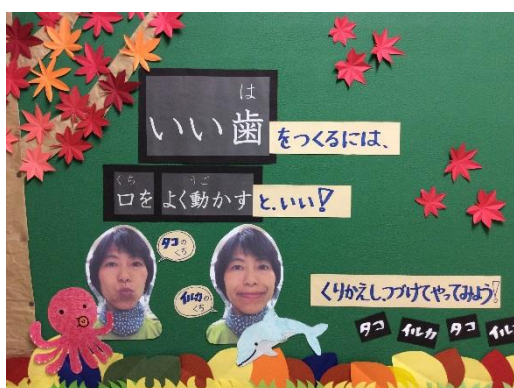 は
いい歯をつくるには、
くち うご
口をよく動かすと、いい!
タコのくち
イルカのくち
くりかえしつづけてやってみよう!
タコ イルカ タコ イル